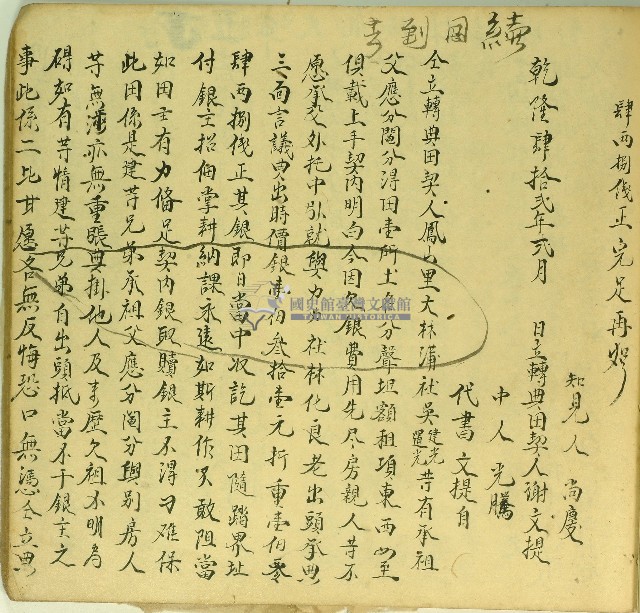 肆両捌伐正完足再炤
知見人 尚慶
乾隆肆拾弍年弍月 日立轉典田契人謝文提
中人 光騰
代書 文提自
仝立轉典田契人鳳山里大林蒲社吳建光 光等有承祖
父應分鬮分得田壹所土名 分聲坵額租項東西四至
俱載上手契內明白今因欠銀費用先尽房親人等不
愿承受外托中引就與 社林化良老出頭承典
三面言議典出時價銀壹佰叁拾壹元折重壹佰叁
肆両捌伐正其銀即日當中收訖其田隨踏界址
付銀主招佃掌耕納課永遠如斯耕作不敢阻當
如田主有力俻足契內銀取贖銀主不得刁难保
此田係是建等兄弟承祖父應分鬮分與別房人
等無涉亦無重賬典掛他人及來歷欠租不明為
碍如有等情建等兄弟自出頭抵當不干銀主之
事此係二比甘愿各無反悔恐口無憑仝立典
國史館臺灣文獻館
TAIWAN HISTORICA